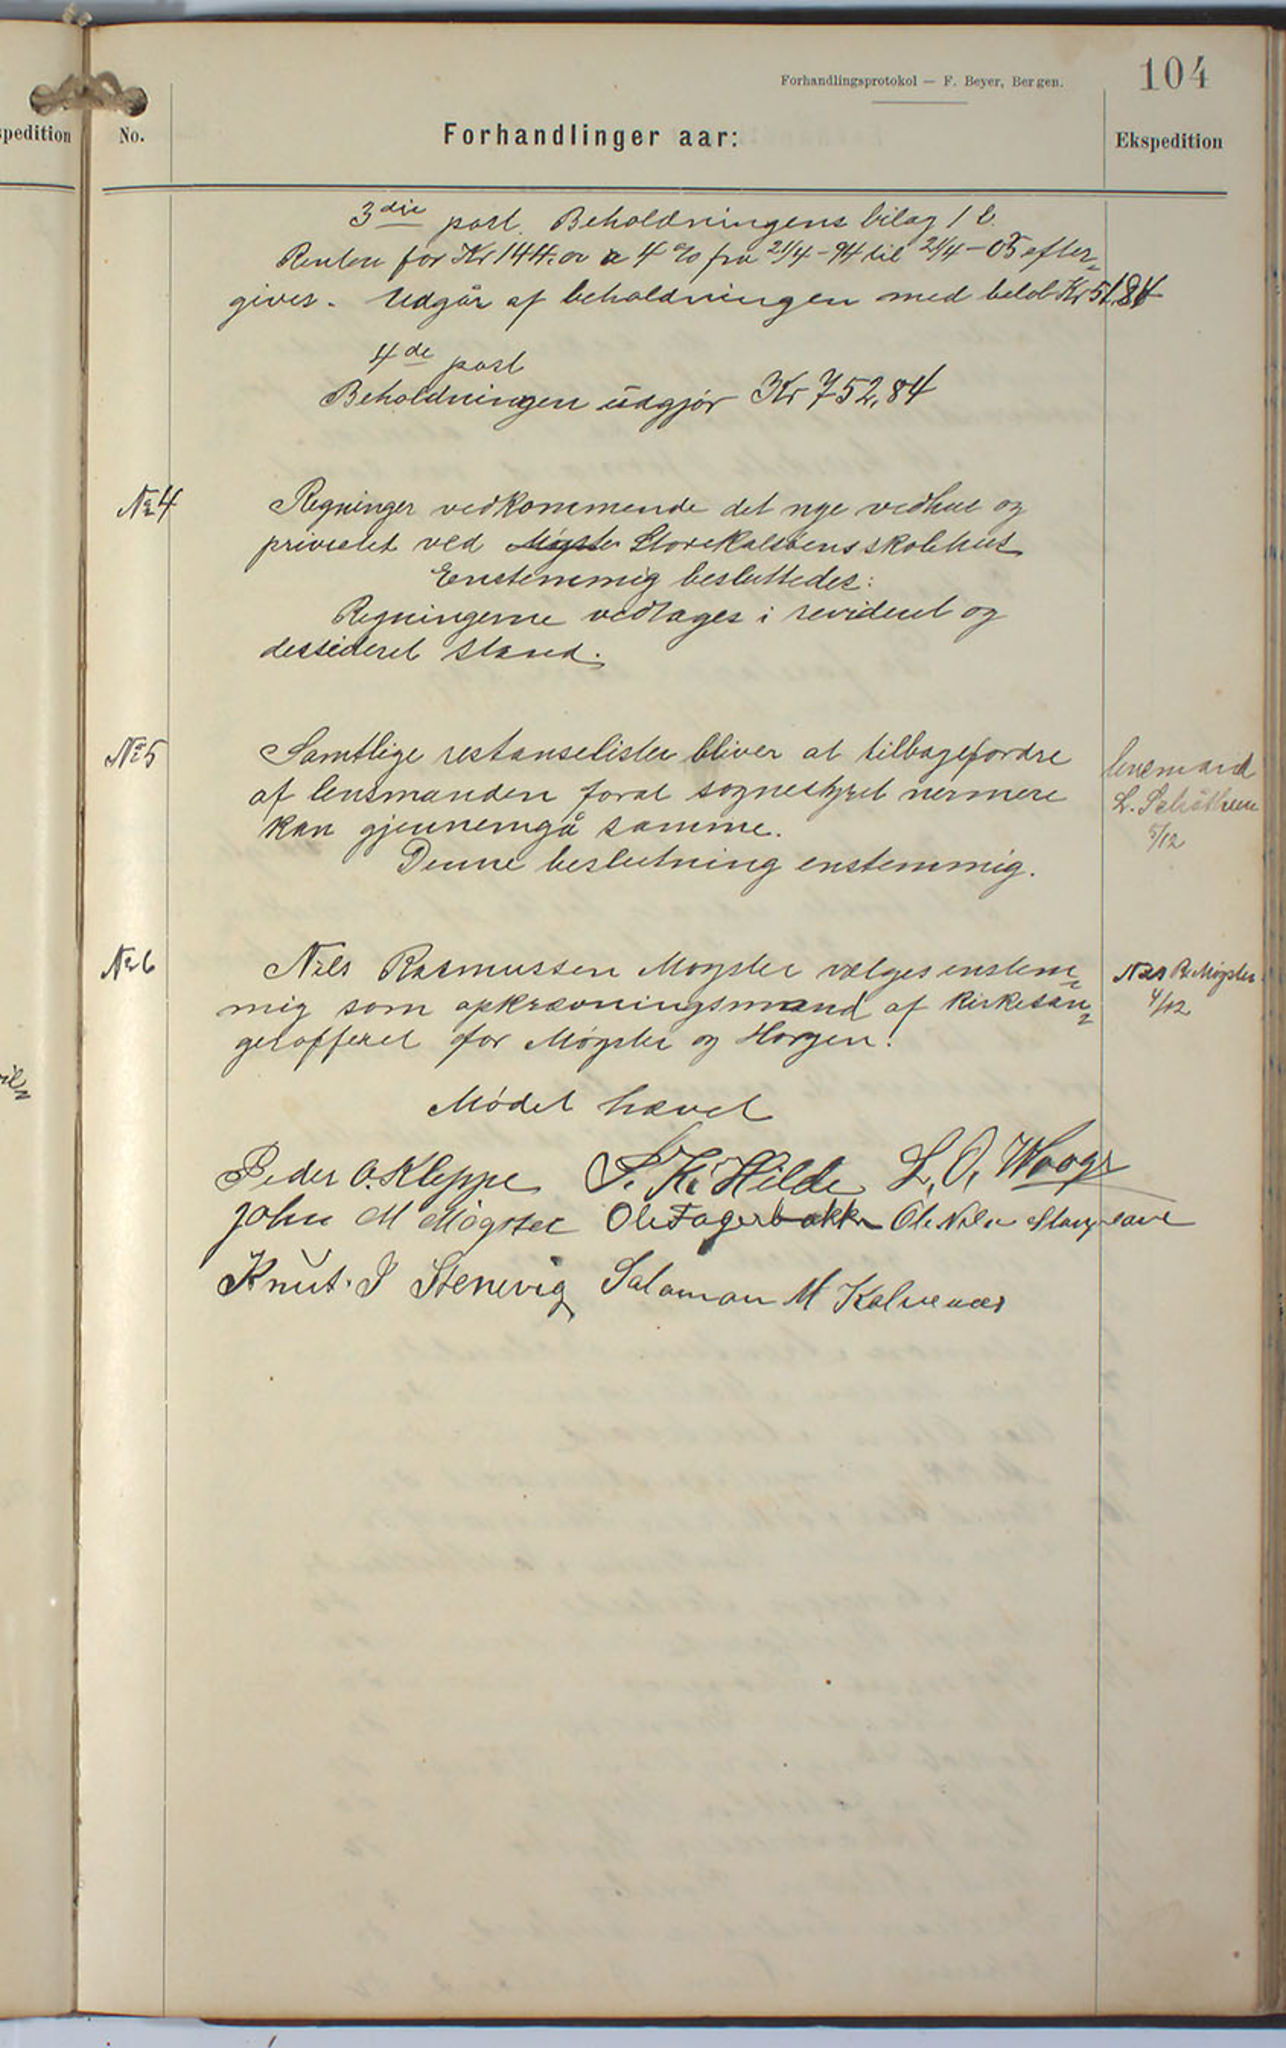 104
Forhandlingsprotokol — F. Beyer, Bergen.
spedition
No.
Forhandlinger aar:
Ekspedition
3die post. Beholdningens bilag 1 b.
Renten for Kr 144.00 a 4 % fra 21/4 - 94 til 21/4 - 05 efter=
gives. Udgår af beholdningen med beløb Kr 51.84
4de post
Beholdningen udgjør Kr 752,84
No 4
Regninger vedkommende det nye vedhus og
privetet ved Møgster Storekalsøens skolehus
Enstemmig besluttedes:
Regningerne vedtages i revideret og
dessideret stand.
No 5
Samtlige restanselister bliver at tilbagefordre
af lensmanden forat sognestyret nermere
kan gjennemgå samme.
Denne beslutning enstemmig.
lensmand
L.
5/12
No 6
Nils Rasmussen Møgster vælges enstem=
mig som opkrævningsmand af kirkesan=
gerofferet for Møgster og Horgen.
Nils R. Møgster
4/12
Mødet hævet
Peder O. Kleppe S. K. Hilde L. O. Waage
John M Møgster Ole Fagerbakke Ole Nilsen
Knut. J Stenevig Salamon M Kalvenæs